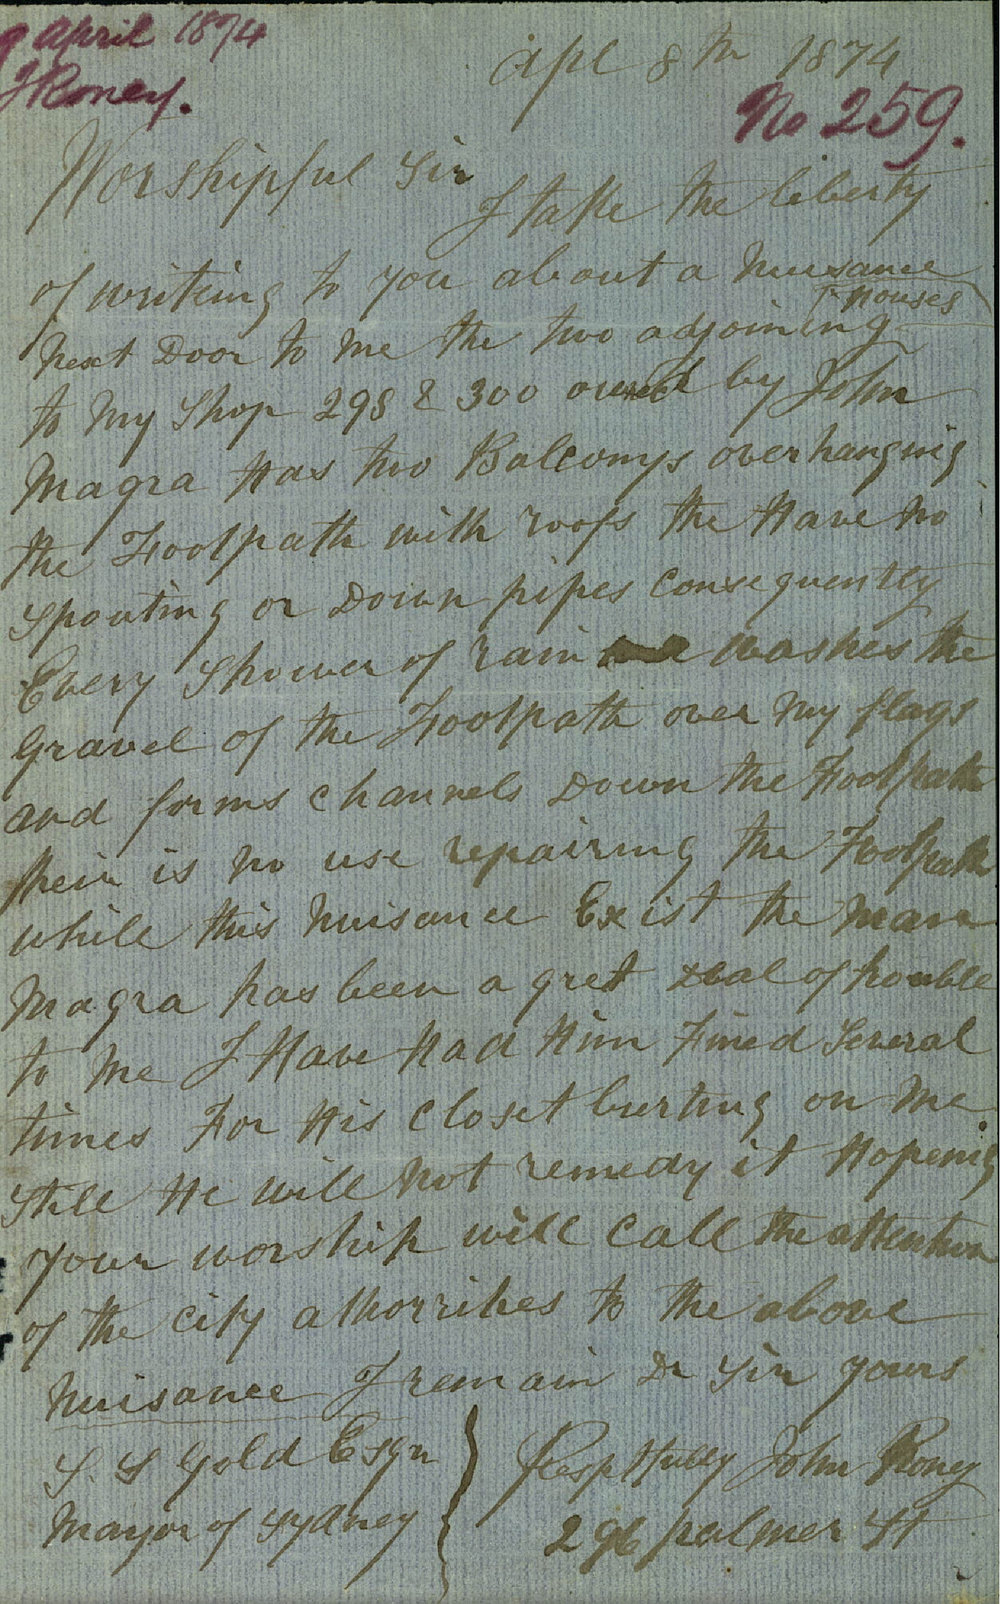 9 April 1874
J Roney.
Apl 8th 1874
No 259.
Worshipful Sir
I take the liberty
of writing to you about a Nuisance
next Door to me the two adjoining ^ Houses
to My Shop 298 & 300 owned by John
Magra Has two Balconys overhanging
the Footpath with roofs the Have no
Spouting or Down pipes consequently
Every Shower of rain washes the
Gravel of the Footpath over my flags
and forms channels Down the Footpath
their is no use repairing the Footpath
while this Nuisance Exist the man
Magra has been a gret deal of trouble
to me I Have Had Him Fined Several
times For His closet bursting on me
Still He will Not remedy it Hopeing
your worship will call the attention
of the city athorrities to the above
Nuisance I remain Dr Sir yours
S. S Gold Esqr
Mayor of Sydney
Respttfully John Roney
296 palmer St